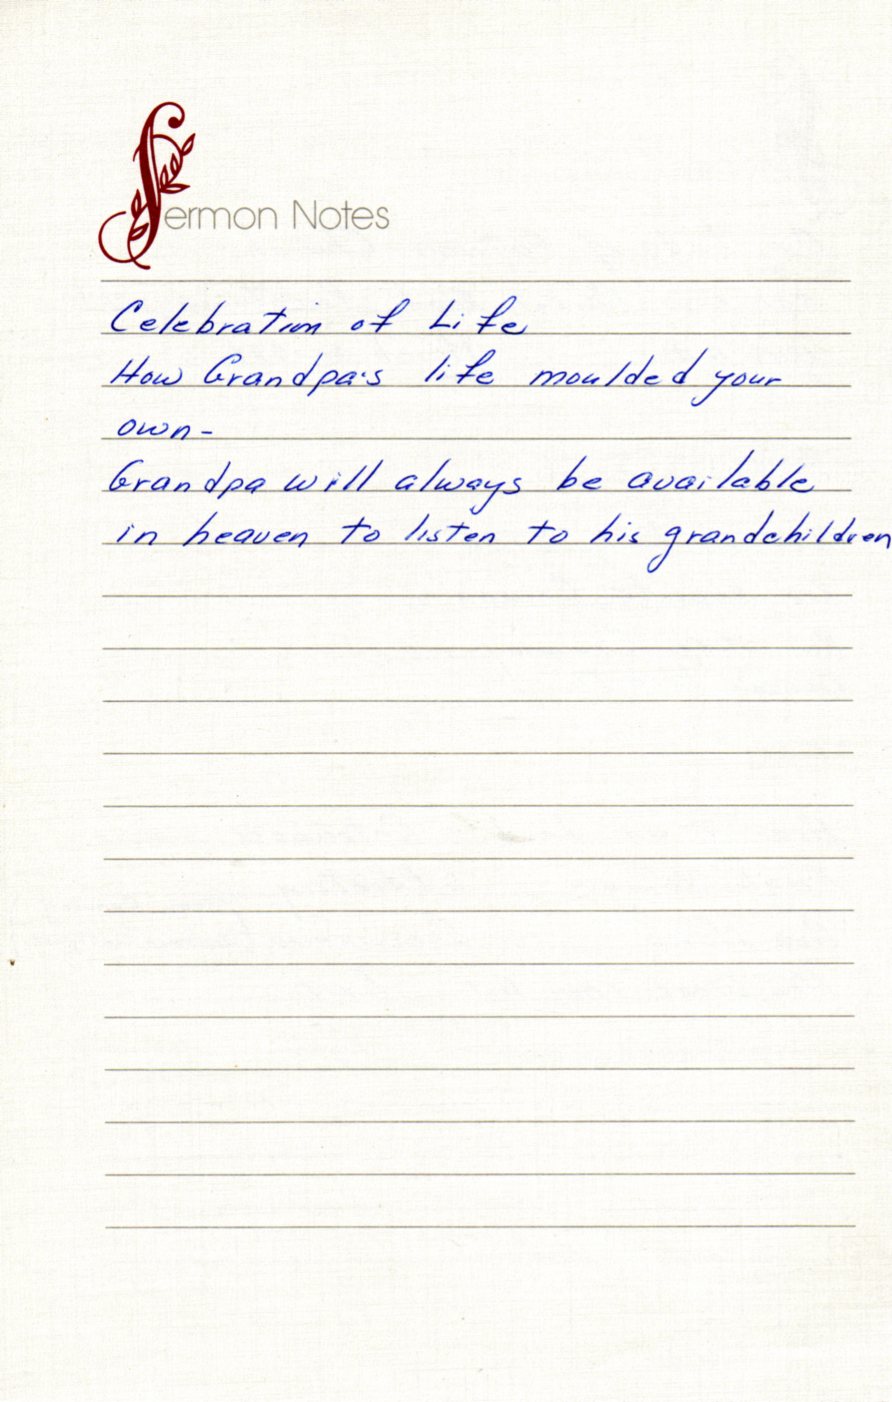 Sermon Notes
Celebration of Life
How Grandpa's life moulded your
own-
Grandpa will always be available
in heaven to listen to his grandchildren